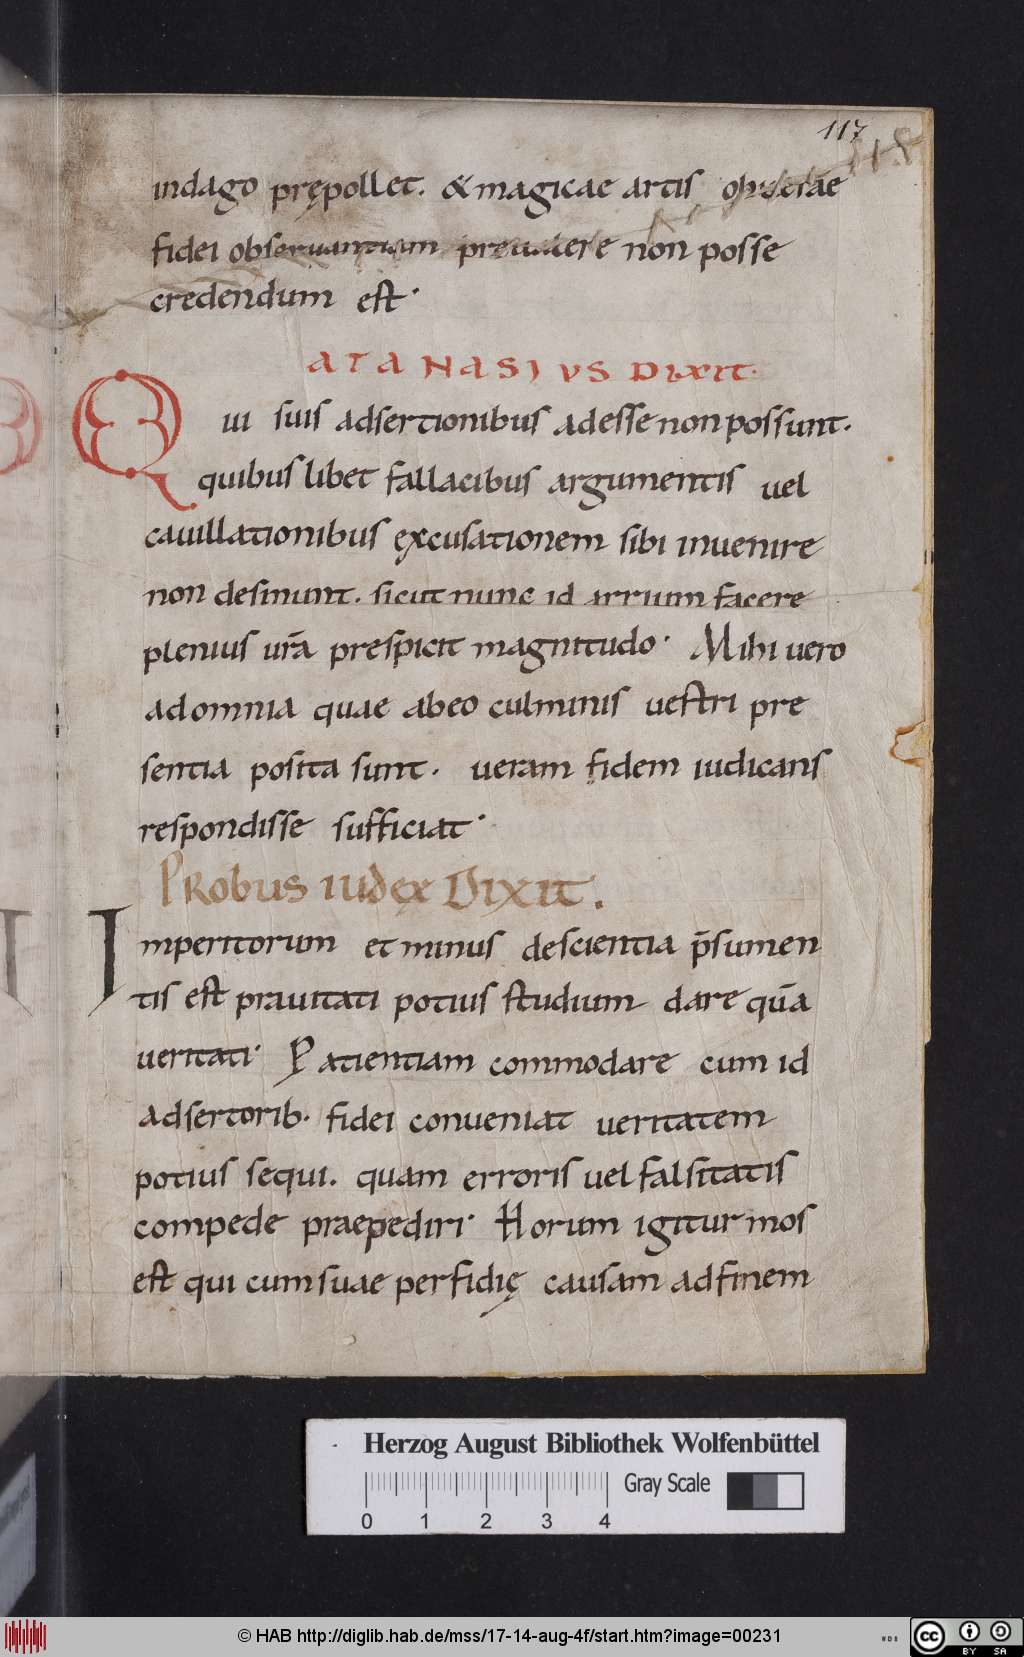 117
118
indago prępollet. & magicae artis operae
fidei obseruantium preualere non posse
credendum est.
ATANASIUS DIXIT.
Qui suis adsertionibus adesse non possunt.
quibus libet fallacibus argumentis uel
cauillationibus ęxcusationem sibi inuenire
non desinunt. sicut nunc id arrium facere
plenius ur̄a prespicit magnitudo. Mihi uero
ad omnia quae abeo culminis uestri pre
sentia posita sunt. ueram fidem iudicans
respondisse sufficiat.
PRobus iudex Dixit.
Imperitorum et minus descientia p̄sumen
tis est prauitati potius studium dare quā
ueritati. Patientiam commodare cum id
adsertorib. fidei conueniat ueritatem
potius sequi. quam erroris uel falsitatis
compede praepediri. Horum igitur mos
est qui cum suae perfidię causam ad finem
Herzog August Bibliothek Wolfenbüttel
Gray Scale
0 1 2 3 4
© HAB http://diglib.hab.de/mss/17-14-aug-4f/start.htm?image=00231
WDB
cc BY SA